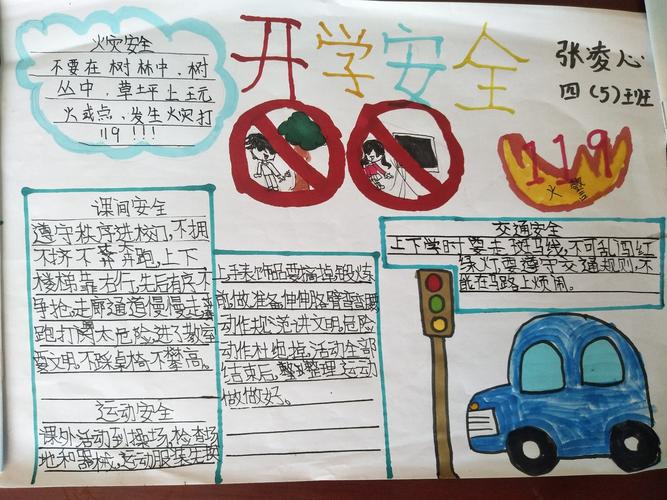 开学安全
张凌心
四(5)班
火灾安全
不要在树林中、树
丛中、草坪上玩
火或点、发生火灾打
119!!!
119
火警
课间安全
遵守秩序进校门,不拥
不挤不奔跑,上下
楼梯靠右行,先后有序不
争抢,走廊通道慢慢走
跑打闹太危险,进了教室
要文明,不踩桌椅不攀高。
运动安全
课外活动到操场,检查场
地和器械,运动服装先换
上,手表饰品要摘掉,锻炼
前做准备,伸伸胳臂
动作规范讲文明,危险
动作杜绝掉,活动全部
结束后,整理运动
做做好。
交通安全
上下学时要走斑马线,不可乱闯红
绿灯要遵守交通规则,不
能在马路上